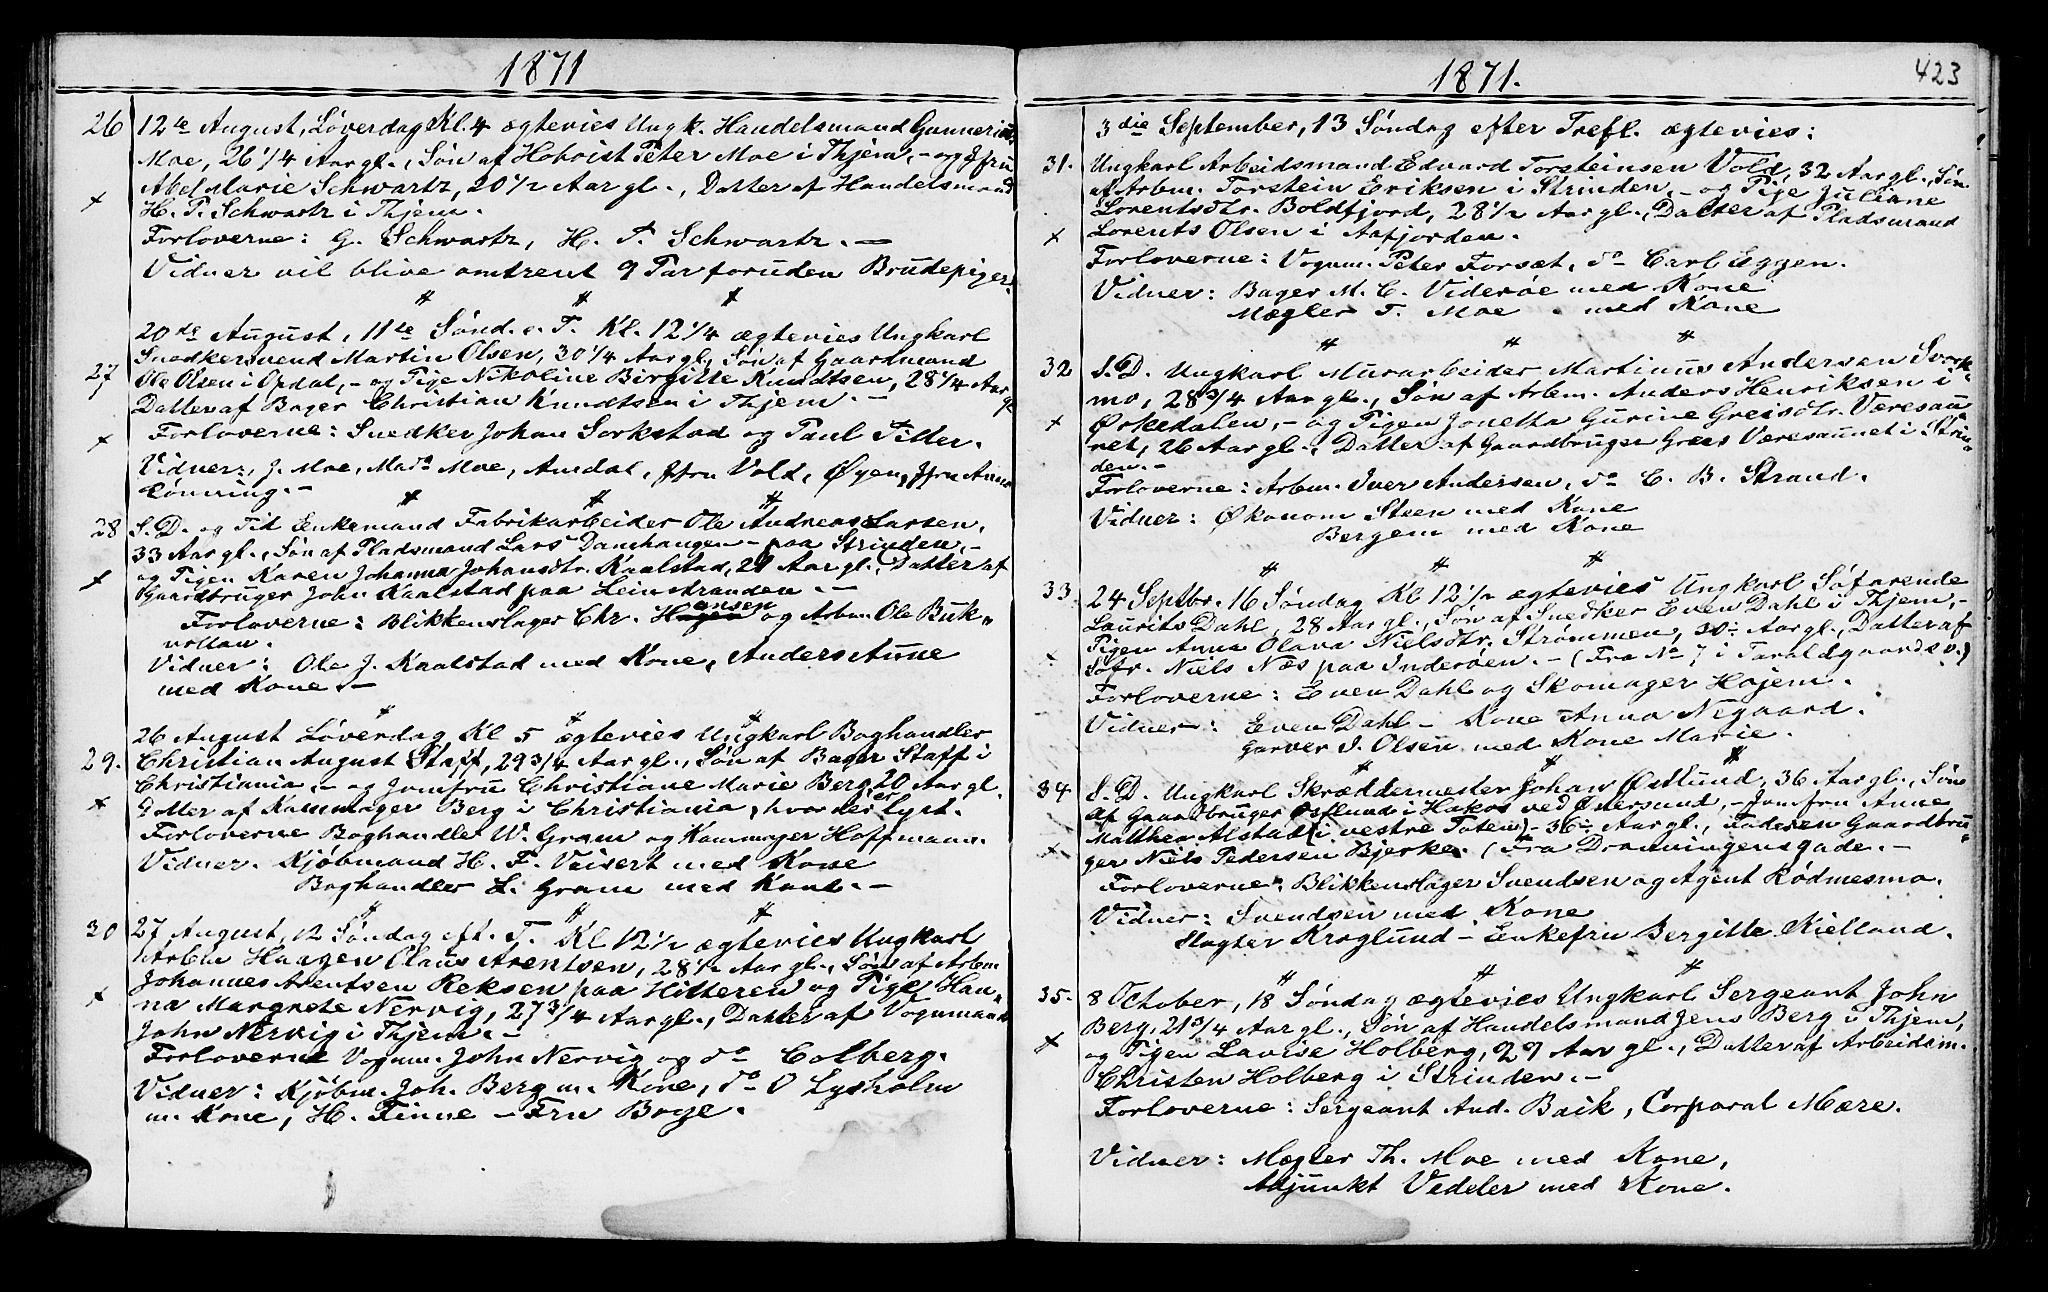 1871
26 12te August, Löverdag Kl. 4 ægtevies Ungk. Handelsmand Gunnerius
Moe, 26 1/4 Aar gl., Søn af Hoboist Peter Moe i Thjem, - og Jfru
Abel Marie Schwartz, 20 1/2 Aar gl., Datter af Handelsmand
x H. P. Schwartz i Thjem.
Forloverne: G. Schwartz, H. P. Schwartz. —
Vidner vil blive omtrent 9 Par foruden Brudepiger.
# # #
20de August, 11te Sønd. e. T. Kl. 12 1/4 ægtevies Ungkarl
Snedkersvend Martin Olsen, 30 1/4 Aar gl., Søn af Gaardmand
27 Ole Olsen i Opdal, - og Pige Nikoline Birgitte Knudtsen, 28 1/4 Aar gl
Datter af Bager Christian Knudtsen i Thjem. —
x Forloverne: Snedker Johan Sorkstad og Paul Tiller.
Vidner: J. Moe, Mad. Moe, Amdal, Jfru Vold, Øyen, Jfru Anna
Lønning. —
# # #
28 S. D. og Tid Enkemand Fabrikarbeider Ole Andreas Larsen,
33 Aar gl., Søn af Pladsmand Lars Damhaugen - paa Strinden, -
x og Pigen Karen Johanna Johansdtr. Kaalstad, 29 Aar gl., Datter af
Gaardbruger John Kaalstad paa Leinstranden. —
Forloverne: Blikkenslager Chr. Hansen og Arbm. Ole Buk-
vollan.
Vidner: Ole J. Kaalstad med Kone, Anders Aune
med Kone. —
# # #
26 August Løverdag Kl 5 ægtevies Ungkarl Boghandler
29. Christian August Staff, 29 3/4 Aar gl., Søn af Bager Staff i
Christiania - og Jomfru Christiane Marie Berg, 20 Aar gl.
x Datter af Kammager Berg i Christiania, hvor der er Lyst.
Forloverne Boghandler W. Gram og Kammager Hoffmann.
Vidner. Kjøbmand H. F. Veisert med Kone
Boghandler L. Gram med Kone. —
# # #
30 27 August, 12 Søndag eft. T. Kl 12 1/2 ægtevies Ungkarl
Arbm Haagen Claus Arentsen, 28 1/2 Aar gl., Søn af Arbm.
Johannes Arentsen Reksen paa Hitteren og Pige Han-
x na Margrete Nervig, 27 3/4 Aar gl., Datter af Vognmand
John Nervig i Thjem. —
Forloverne Vognm. John Nervig og do Colberg.
Vidner: Kjøbm. Joh. Berg m. Kone, do O Lysholm
m. Kone, H. Finne - Fru Boye.
1871.
423
3die September, 13 Søndag efter Trefl. ægtevies:
31. Ungkarl Arbeidsmand Edvard Torsteinsen Vold, 32 Aar gl., Søn
af Arbm. Torstein Eriksen i Strinden, - og Pige Juliane
Lorentsdtr. Boldfjord, 28 1/2 Aar gl., Datter af Pladsmand
x Lorents Olsen i Aafjorden.
Forloverne: Vognm. Peter Forsæt, do Carl Eggen.
Vidner: Bager M. C. Viderøe med Kone
Mægler T. Moe med Kone
# # #
32 S. D. Ungkarl Murarbeider Martinus Andersen Svork-
mo, 28 3/4 Aar gl., Søn af Arbm. Anders Henriksen i
x Ørkedalen, - og Pigen Jonetta Gurine Greisdtr. Væresau-
net, 26 Aar gl., Datter af Gaardbruger Greis Væresaunet i Strin-
den. —
Forloverne: Arbm. Iver Andersen, do C. B. Strand.
Vidner: Økonom Steen med Kone
Bergem med Kone
# # #
33 24 Septbr. 16 Søndag Kl 12 1/2 ægtevies Ungkarl Søfarende
Laurits Dahl, 28 Aar gl., Søn af Snedker Even Dahl i Thjem, -
Pigen Anna Olava Nielsdtr. Strømmen, 30 Aar gl., Datter af
x Søfr. Niels Næs paa Inderøen. - (Fra No 7 i Taraldgaardsv.)
Forloverne: Even Dahl og Skomager Hojem.
Vidner: Even Dahl - Kone Anna Negaard.
Garver S. Olsen med Kone Marie.
# # #
34 S. D. Ungkarl Skræddermester Johan Østlund, 36 Aar gl., Søn
af Gaardbruger Østlund i Hakos ved Østersund, - Jomfru Anne
Matthea Alstad (i vestre Toten) - 36 Aar gl., Faderen Gaardbru-
x ger Niels Pedersen Bjerke. (Fra Dronningensgade. -
Forloverne: Blikkenslager Svendsen og Agent Rødmesmo.
Vidner: Svendsen med Kone
Slagter Kroglund - Enkefru Bergitte Kielland.
# # #
35. 8 October, 18 Søndag ægtevies Ungkarl Sergeant John
Berg, 21 3/4 Aar gl., Søn af Handelsmand Jens Berg i Thjem,
x og Pigen Lovise Holberg, 29 Aar gl., Datter af Arbeidsm.
Christen Holberg i Strinden. —
Forloverne: Sergeant And. Baik, Corporal Mære.
Vidner: Mægler Th. Moe med Kone,
Adjunkt Vedeler med Kone.